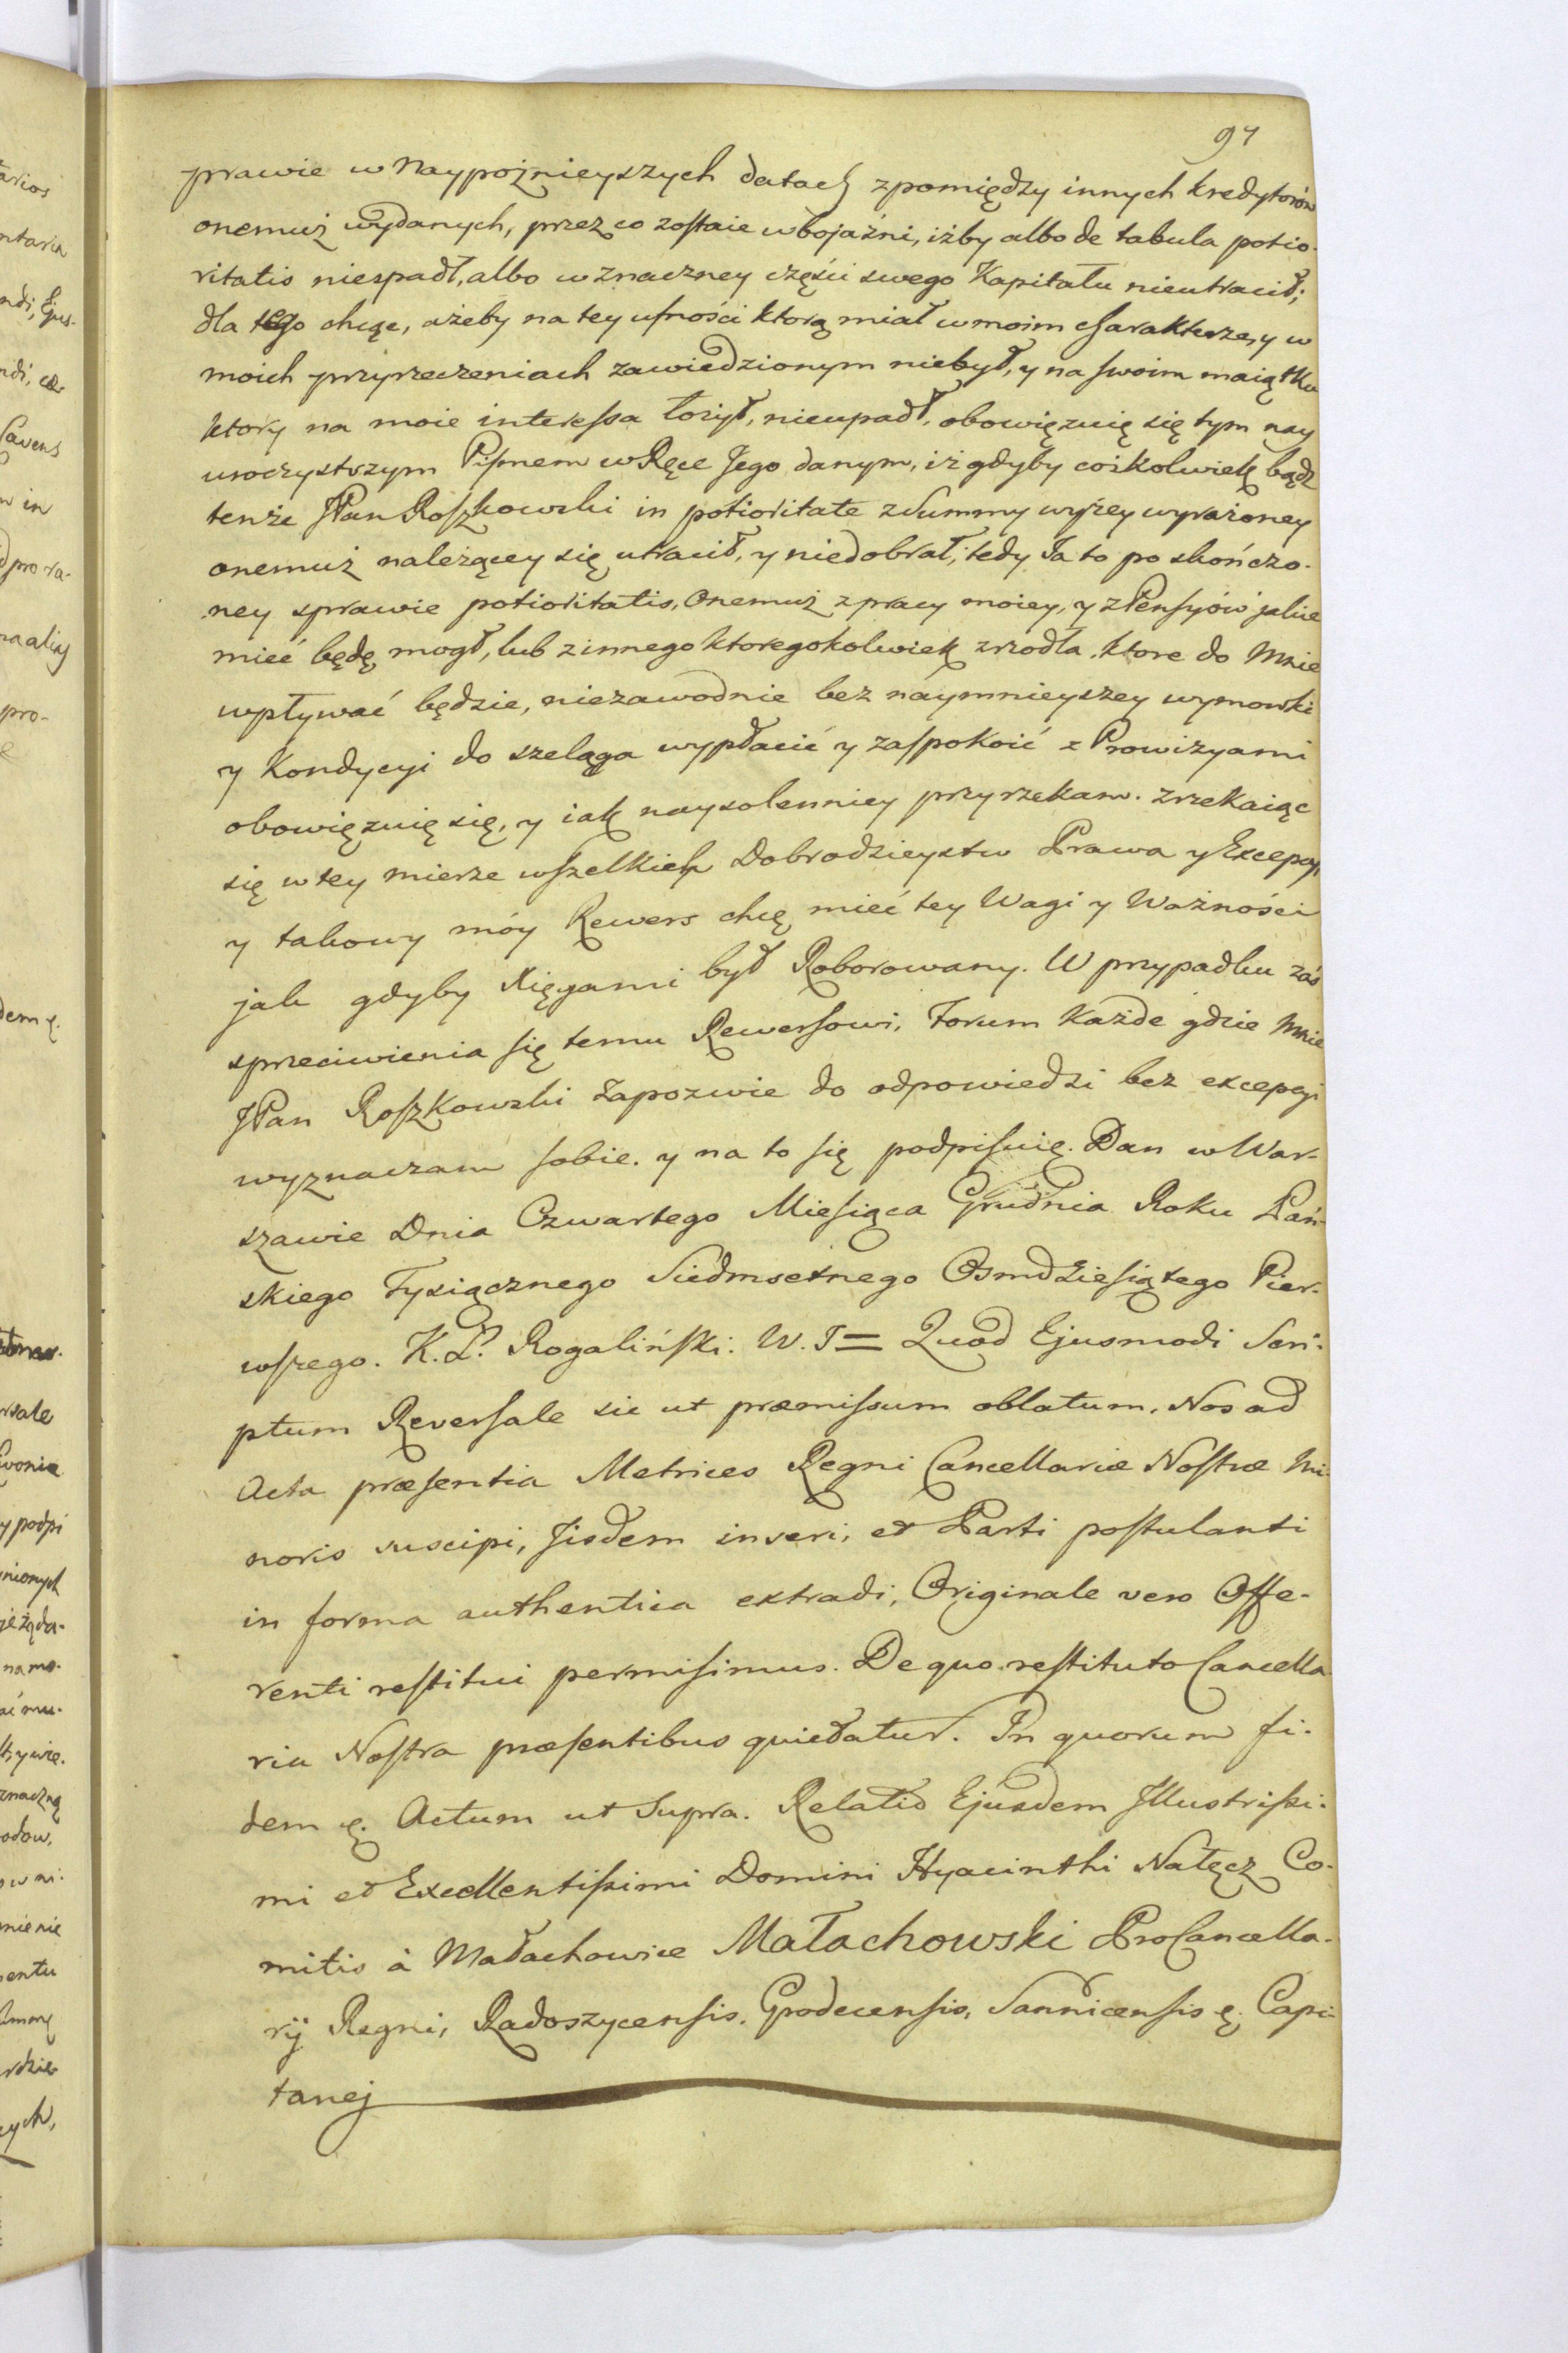 97
prawie w Naypoznieyszych datach zpomiędzy innych kredytorów
onemuż wydanych, przez co zostaie w bojaźni, iżby albo de tabula potio-
ritatis niespadł, albo w znaczney części swego Kapitału nieutracił;
dla tego chcąc, ażeby na tey ufności ktorą miał w moim charakterze, y w
moich przyrzeczeniach zawiedzionym niebył, y na swoim maiątku
ktory na moie interessa łożył, nieupadł, obowięzuię się tym nay
uroczystszym Pismem w Ręce Jego danym, iż gdyby cożkolwiek bądź
tenże JPan Roszkowski in potioritate z Summy wyżey wyrażoney
onemuż należącey się utracił, y niedobrał, tedy Ja to po skończo-
ney sprawie potioritatis, Onemuż z pracy moiey, y z Pensyów jakie
mieć będę mogł, lub z innego ktoregokolwiek zrzodła, ktore do Mnie
wpływać będzie, niezawodnie bez naymnieyszey wymowki
y Kondycyi do szeląga wypłacić y zaspokoić z Prowizyami
obowięzuię się, y iak naysolenniey przyrzekam. zrzekaiąc
się w tey mierze wszelkich Dobrodzieystw Prawa y Excepcyi
y takowy móy Rewers chcę mieć tey Wagi y Ważności
jak gdyby Xięgami był Roborowany. W przypadku zaś
sprzeciwienia się temu Rewersowi, Forum Każde gdzie Mnie
JPan Roszkowski Zapozwie do odpowiedzi bez excepcyi
wyznaczam sobie. y na to się podpisuię. Dan w War-
szawie Dnia Czwartego Miesiąca Grudnia Roku Pań-
skiego Tysiącznego Siedmsetnego Osmdziesiątego Pier-
wszego. K. Rogaliński. W. I = Quod Ejusmodi Scri-
ptum Reversale sic ut præmissum oblatum, Nos ad
Acta præsentia Metrices Regni Cancellariæ Nostræ Mi-
noris suscipi, Jisdem inseri, et Parti postulanti
in forma authentica extradi, Originale vero Offe-
renti restitui permisimus. De quo restituto Cancella
ria Nostra præsentibus quietatur. In quorum fi-
dem &. Actum ut Supra. Relatio Ejusdem Illustrissi-
mi et Excellentissimi Domini Hyacinthi Nałęcz Co-
mitis à Małachowice Małachowski ProCancella-
rij Regni, Radoszycensis, Grodecensis, Sannicensis &. Capi-
tanej